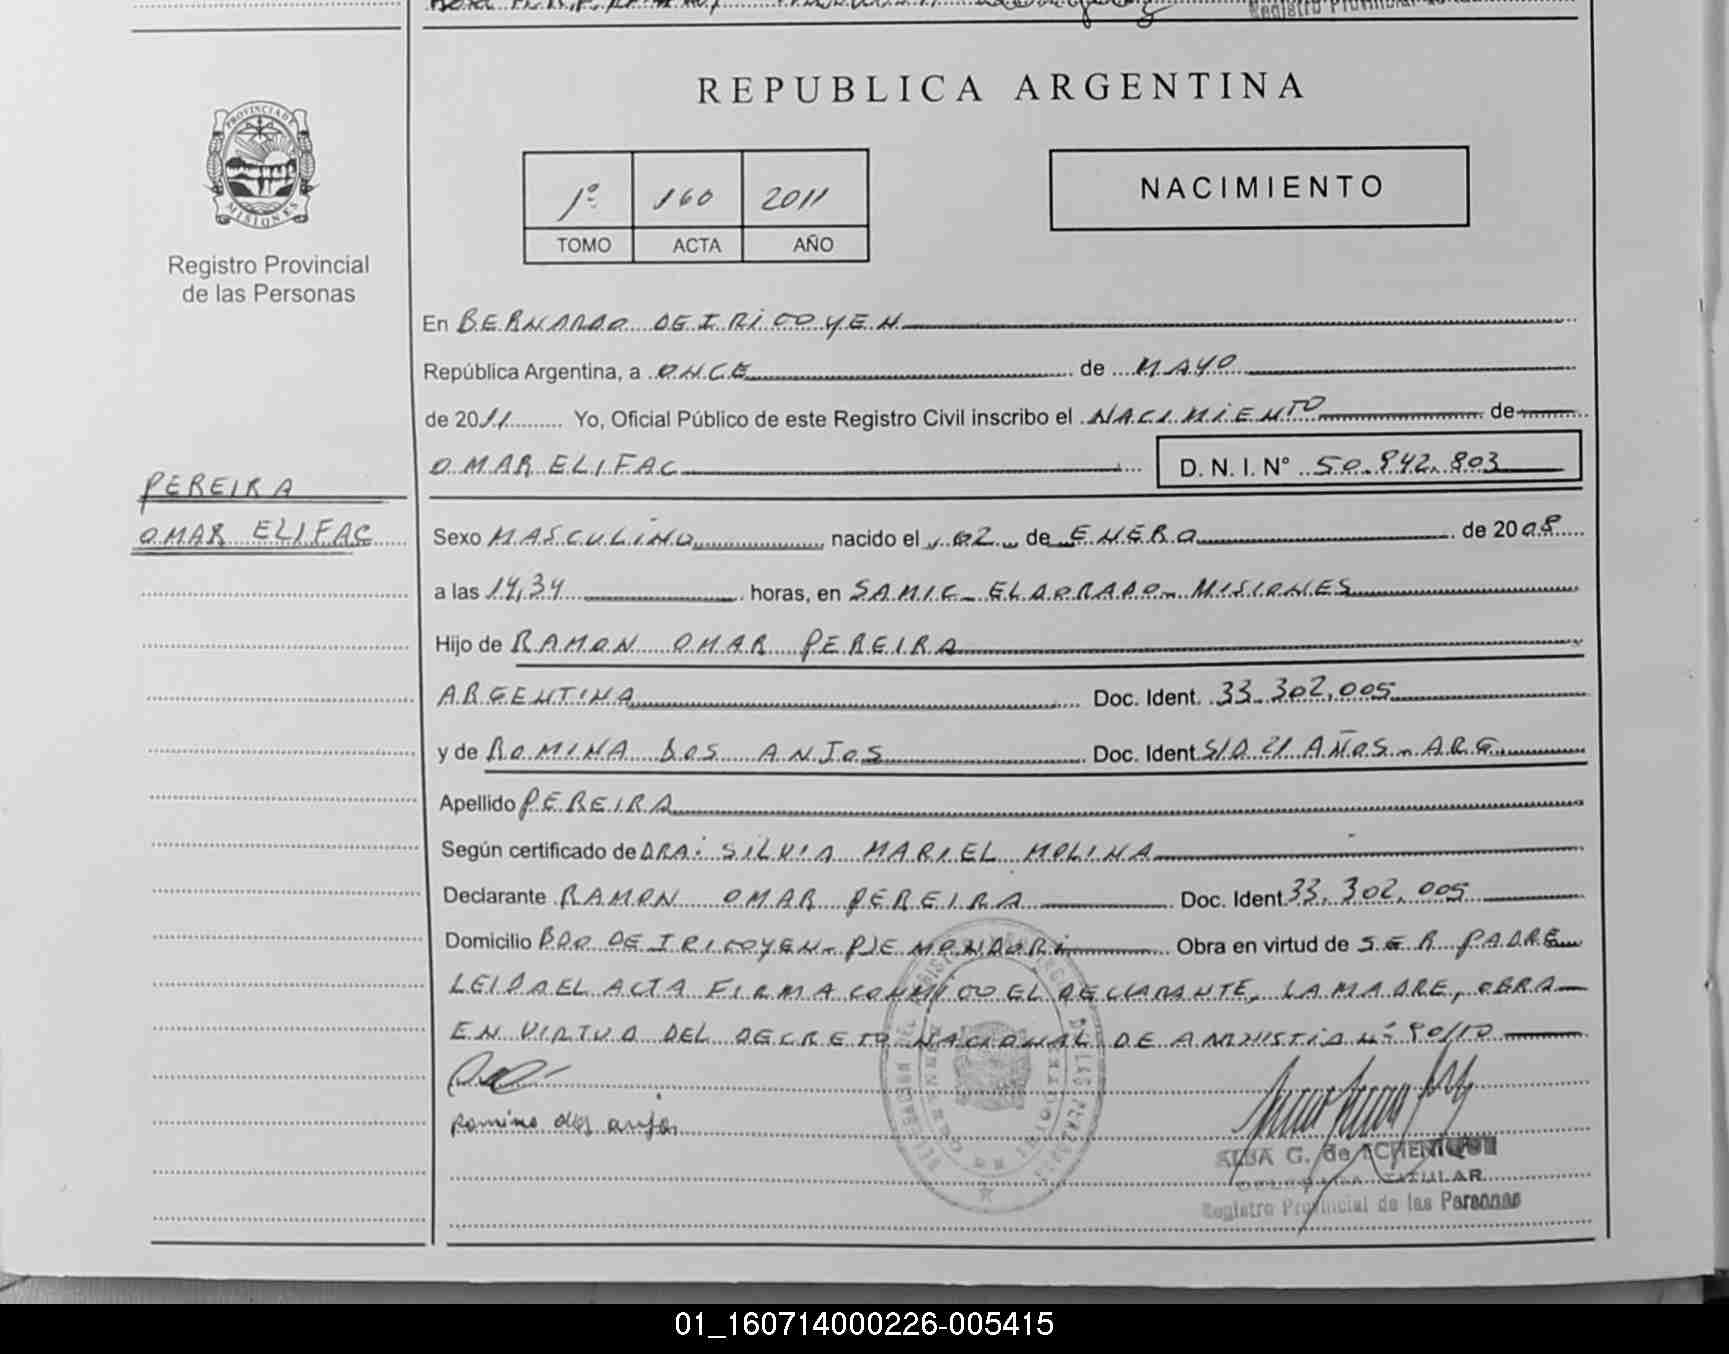 REPUBLICA ARGENTINA
PROVINCIA DE
MISIONES
Registro Provincial
de las Personas
1º 160 2011
TOMO ACTA AÑO
NACIMIENTO
En BERNARDO DE IRIGOYEN
República Argentina, a ONCE de MAYO
de 2011 Yo, Oficial Público de este Registro Civil inscribo el NACIMIENTO de
OMAR ELIFAC D. N. I. Nº 50.842.803
PEREIRA
OMAR ELIFAC
Sexo MASCULINO nacido el 02 de ENERO de 2008
a las 14,34 horas, en SAMIC - ELDORADO - MISIONES
Hijo de RAMON OMAR PEREIRA
ARGENTINA Doc. Ident. 33.302.005
y de ROMINA DOS ANJOS Doc. Ident S/D 21 AÑOS - ARG.
Apellido PEREIRA
Según certificado de DRA: SILVIA MARIEL MOLINA
Declarante RAMON OMAR PEREIRA Doc. Ident 33.302.005
Domicilio BDO DE IRIGOYEN - PJE MONDORI Obra en virtud de SER PADRE
LEIDA EL ACTA FIRMA CONMIGO EL DECLARANTE, LA MADRE, OBRA
EN VIRTUD DEL DECRETO NACIONAL DE AMNISTIA Nº 90/10
Romina dos anjos
ALBA G. de
TITULAR
Registro Provincial de las Personas
01_160714000226-005415